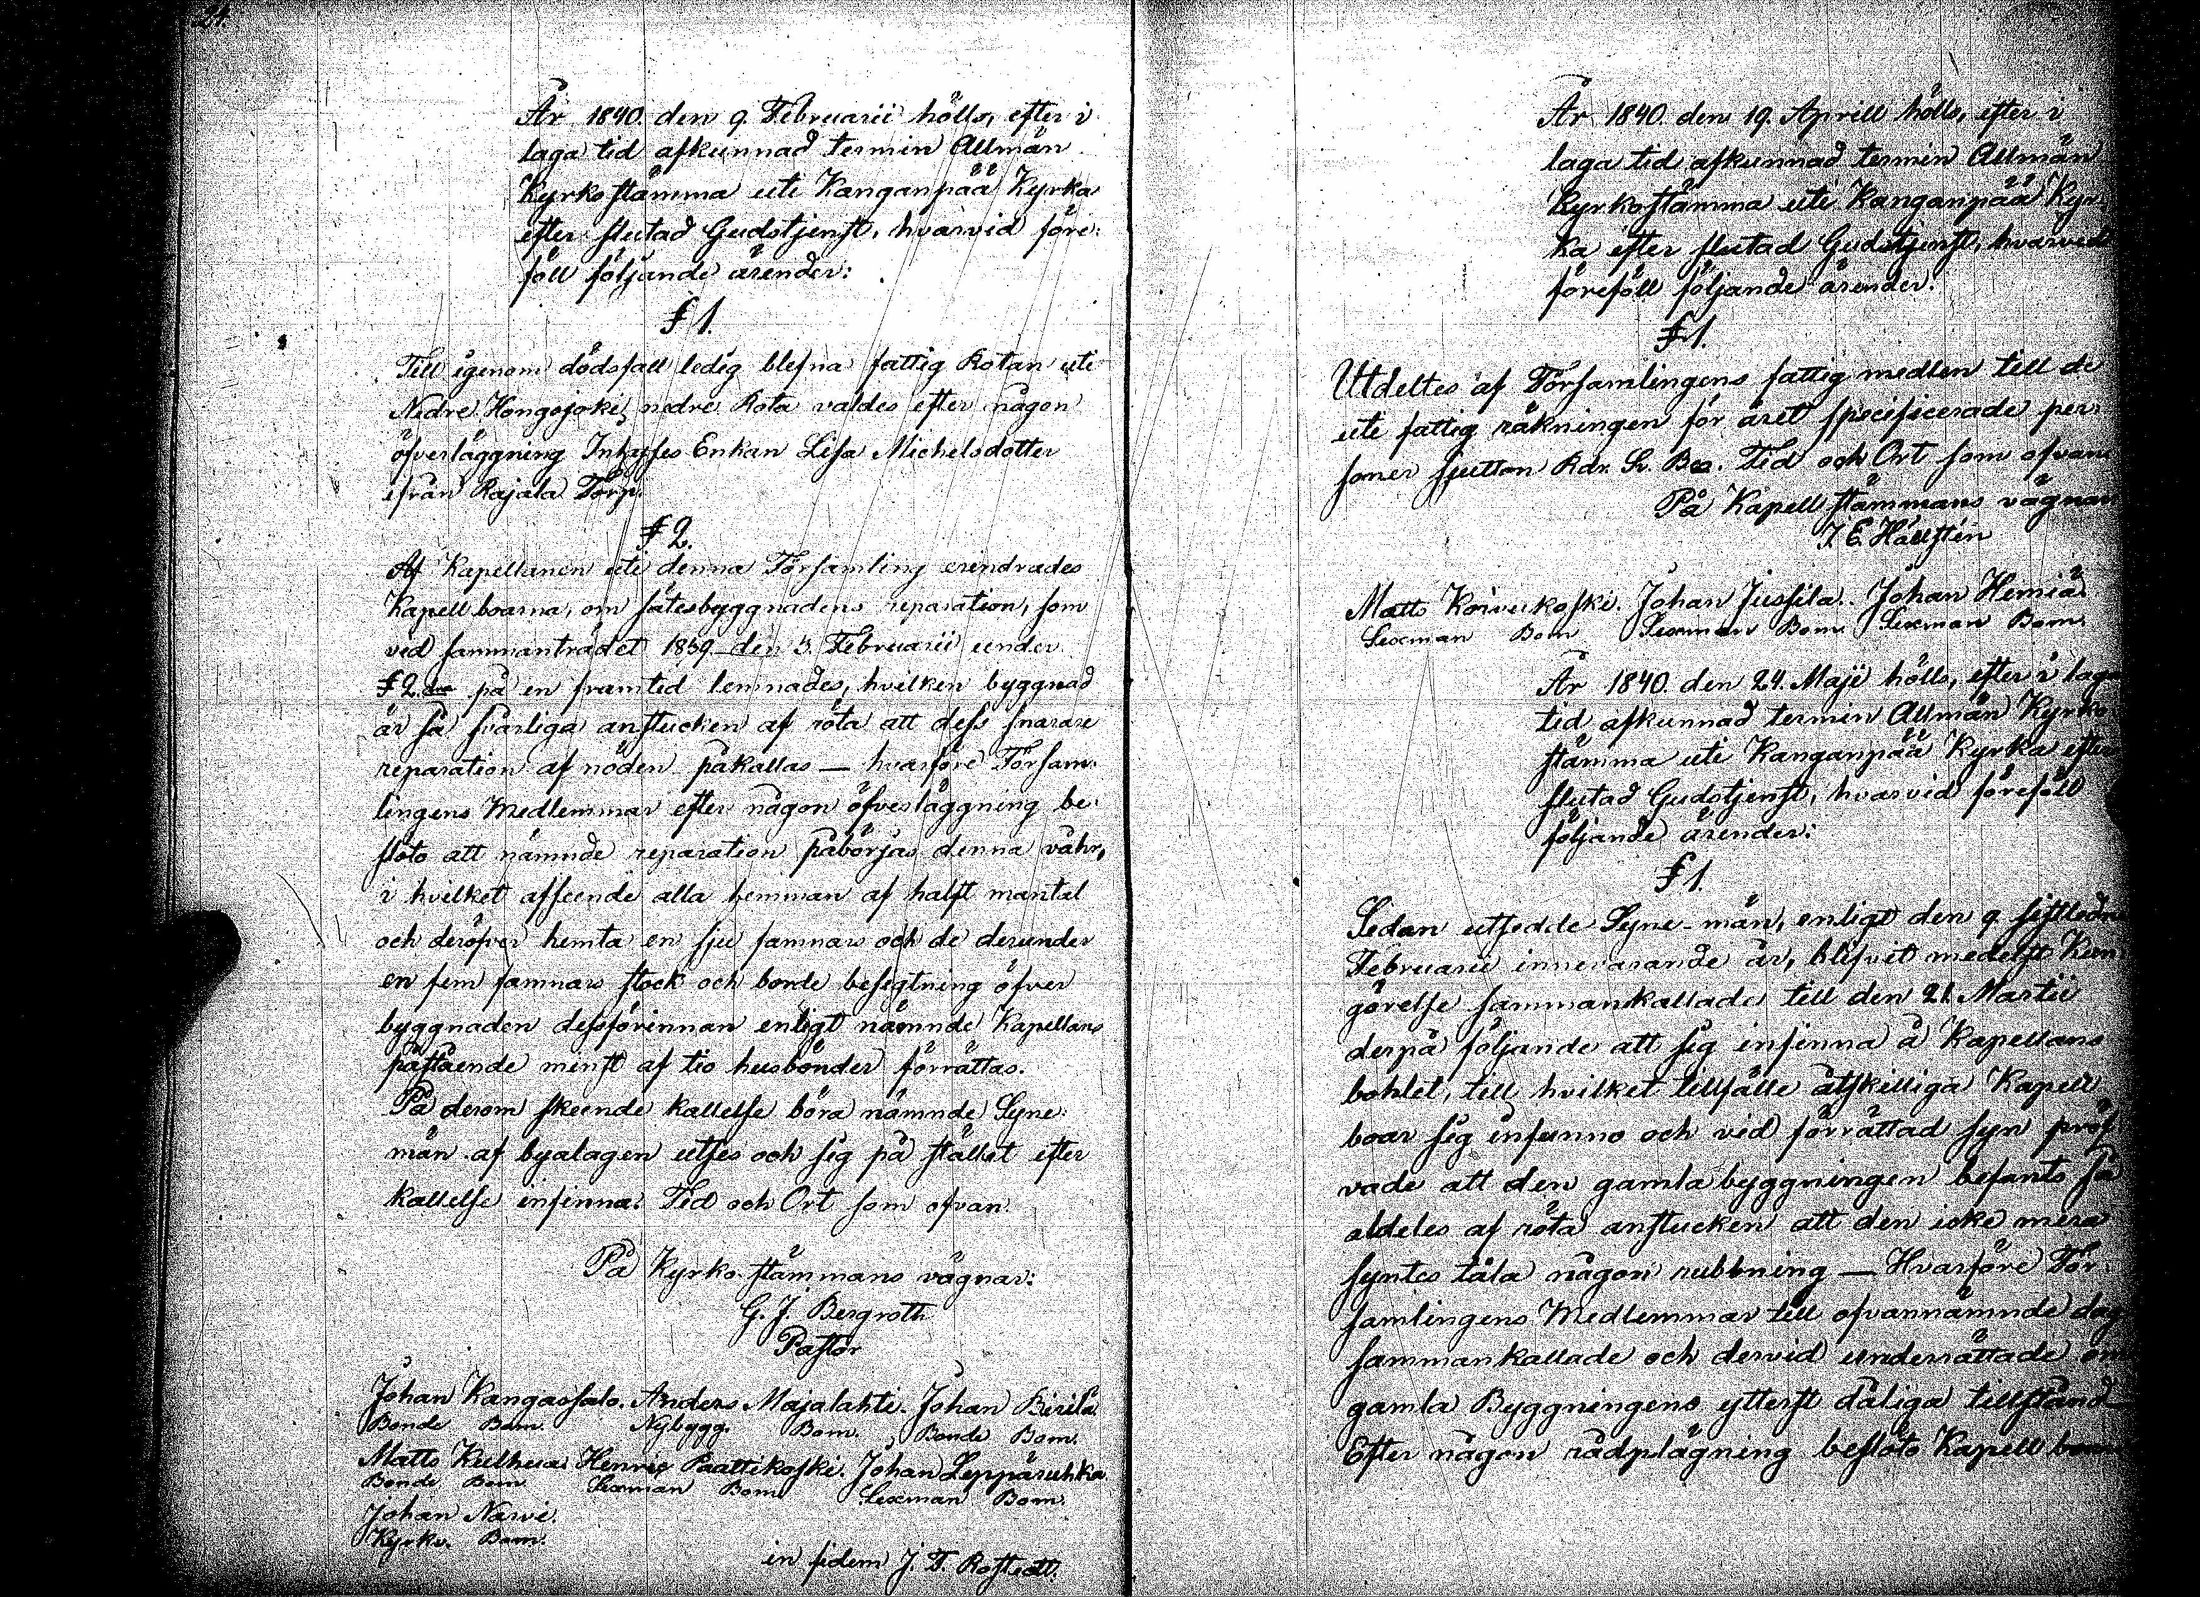 24.
År 1840. den 9. Februarii hölls, efter i
laga tid afkunnad termin Allmän
Kyrkostämma uti Kanganpää Kyrka
efter slutad Gudstjenst, hvarvid före-
föll följande ärender:
§ 1.
Till igenom dödsfall ledig blefna fattig Rotan uti
Nedre Hongojoki nedre Rota valdes efter någon
öfverläggning Inhyses Enkan Lisa Michelsdotter
ifrån Rajala Torp.
§ 2.
Af Kapellanen uti denna Församling erindrades
Kapellboarna, om sätesbyggnadens reparation, som
vid sammanträdet 1839 den 3. Februarii under
§ 2 på en framtid lemnades, hvilken byggnad
är så svårliga anstucken af röta att dess snarare
reparation af nöden påkallas — hvarföre Försam-
lingens Medlemmar efter någon öfverläggning be-
slöto att nämnde reparation påbörjas denna våhr,
i hvilket afseende alla hemman af halft mantal
och deröfver hemta en sju famnars och de derunder
en fem famnars stock och borde besigtning öfver
byggnaden dessförinnan enligt nämnde Kapellans
påstående minst af tio husbönder förrättas.
På derom skeende kallelse böra nämnde Syne-
män af byalagen utses och sig på stället efter
kallelse infinna. Tid och Ort som ofvan.
På Kyrko stämmans vägnar:
G. J. Bergroth
Pastor
Johan Kangassalo. Anders Majalahti. Johan Birilä
Bonde Bom. Nybygg. Bom. Bonde Bom.
Matts Kulhua Henric Paattikoski. Johan Leppäruhka
Bonde Bom Sexman Bom Sexman Bom.
Johan Narvi.
Kyrkv. Bom.
in fidem J. F. Rostedt.
År 1840. den 19. Aprill hölls, efter i
laga tid afkunnad termin Allmän
Kyrkostämma uti Kanganpää Kyr-
ka efter slutad Gudstjenst, hvarvid
föreföll följande ärender.
§ 1.
Utdeltes af Församlingens fattig medlen till de
uti fattig räkningen för året specificerade per-
soner sjutton Rdr. S. Bco. Tid och Ort som ofvan
På Kapell stämmans vägnar
J E Hällstén
Matts Koivukoski. Johan Jussila. Johan Hemiä.
Sexman Bom Sexman Bom Sexman Bom.
År 1840. den 24. Maji hölls, efter i laga
tid afkunnad termin Allmän Kyrko
stämma uti Kanganpää Kyrka efter
slutad Gudstjenst, hvarvid föreföll
följande ärender:
§ 1.
Sedan utsedde Syne-män, enligt den 9. sistledne
Februarii innevarande år, blifvit medelst Kun
görelse sammankallade till den 21. Martii
derpå följande att sig infinna å Kapellans
bohlet, till hvilket tillfälle åtskilliga Kapell
boar sig infunno och vid förrättad syn pröf
vade att den gamla byggningen befants så
aldeles af röta anstucken att den icke mera
syntes tåla någon rubbning — Hvarföre För-
samlingens Medlemmar till ofvannämnde dag
sammankallade och dervid underrättade om
gamla Byggningens ytterst dåliga tillstånd
Efter någon rådplägning beslöto Kapell